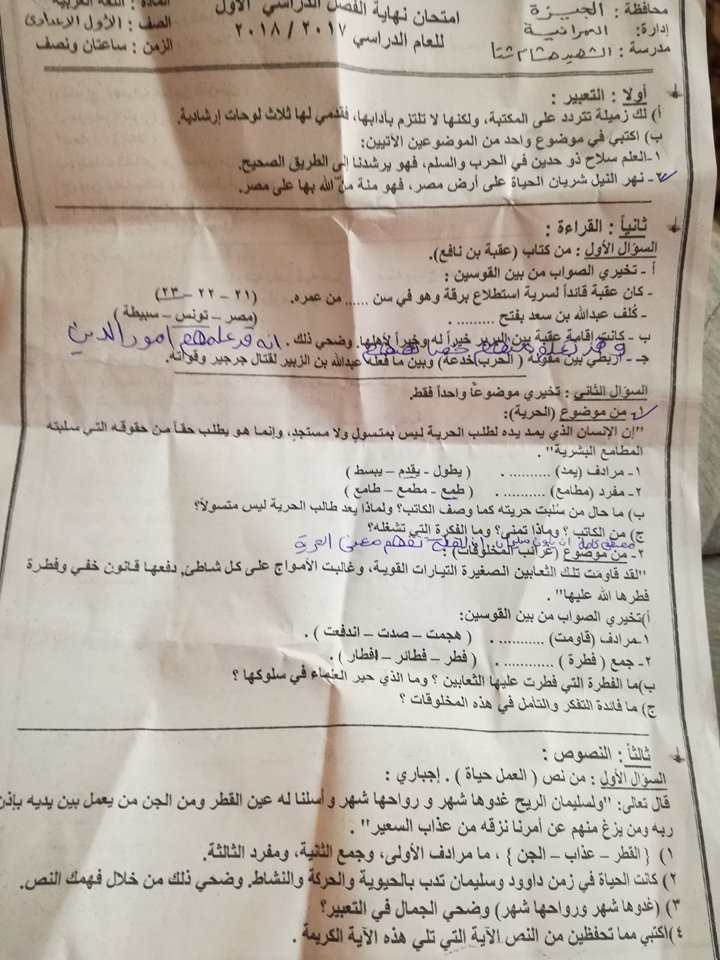 محافظة : الجيزة
إدارة: العمرانية
مدرسة : الشهيد هشام شتا
امتحان نهاية الفصل الدراسي الأول
للعام الدراسي ٢٠١٧ / ٢٠١٨
المادة : اللغة العربية
الصف : الأول الإعدادي
الزمن : ساعتان ونصف
أولا : التعبير :
أ) لك زميلة تتردد على المكتبة، ولكنها لا تلتزم بآدابها، فقدمي لها ثلاث لوحات إرشادية.
ب) اكتبي في موضوع واحد من الموضوعين الآتيين:
١-العلم سلاح ذو حدين في الحرب والسلم، فهو يرشدنا إلى الطريق الصحيح.
٢- نهر النيل شريان الحياة على أرض مصر، فهو منة منّ الله بها على مصر.
ثانياً : القراءة :
السؤال الأول : من كتاب (عقبة بن نافع).
أ - تخيري الصواب من بين القوسين :
- كان عقبة قائداً لسرية استطلاع برقة وهو في سن ...... من عمره. (٢١ – ٢٢ – ٢٣)
- كُلف عبدالله بن سعد بفتح .......... . (مصر – تونس – سبيطلة )
ب - كانت إقامة عقبة بين البربر خيراً له وخيراً لأهلها. وضحي ذلك . انه قد علمهم امور الدين
جـ - اربطي بين مقولة ( الحرب خدعة) وبين ما فعله عبدالله بن الزبير لقتال جرجير وقواته.
السؤال الثاني : تخيري موضوعاً واحداً فقط.
١- من موضوع (الحرية):
"إن الإنسان الذي يمد يده لطلب الحرية ليس بمتسول ولا مستجدٍ، وإنما هو يطلب حقاً من حقوقه التي سلبته
المطامع البشرية" .
١- مرادف (يمد) .......... . ( يطول - يقدم – يبسط )
٢- مفرد (مطامع) .......... . ( طمع - مطمع – طامع )
ب) ما حال من سُلبت حريته كما وصف الكاتب؟ ولماذا يُعد طالب الحرية ليس متسولاً؟
ج) من الكاتب ؟ وماذا تمنى؟ وما الفكرة التي تشغله؟
٢- من موضوع (غرائب المخلوقات) :
"لقد قاومت تلك الثعابين الصغيرة التيارات القوية، وغالبت الأمواج على كل شاطئ, دفعها قانون خفي وفطرة
فطرها الله عليها" .
أ)تخيري الصواب من بين القوسين:
١-مرادف (قاومت) .......... . ( هجمت – صدت – اندفعت ) .
٢- جمع ( فطرة ) .......... . ( فطر – فطائر – افطار ) .
ب)ما الفطرة التي فطرت عليها الثعابين ؟ وما الذي حير العلماء في سلوكها ؟
ج) ما فائدة التفكر والتأمل في هذه المخلوقات ؟
ثالثاً : النصوص :
السؤال الأول : من نص ( العمل حياة ) . إجباري :
قال تعالى: "ولسليمان الريح غدوها شهر و رواحها شهر و أسلنا له عين القطر ومن الجن من يعمل بين يديه بإذن
ربه ومن يزغ منهم عن أمرنا نزقه من عذاب السعير" .
١) { القطر – عذاب – الجن } ، ما مرادف الأولى، وجمع الثانية، ومفرد الثالثة.
٢) كانت الحياة في زمن داوود وسليمان تدب بالحيوية والحركة والنشاط. وضحي ذلك من خلال فهمك النص.
٣) (غدوها شهر ورواحها شهر) وضحي الجمال في التعبير؟
٤)اكتبي مما تحفظين من النص الآية التي تلي هذه الآية الكريمة .